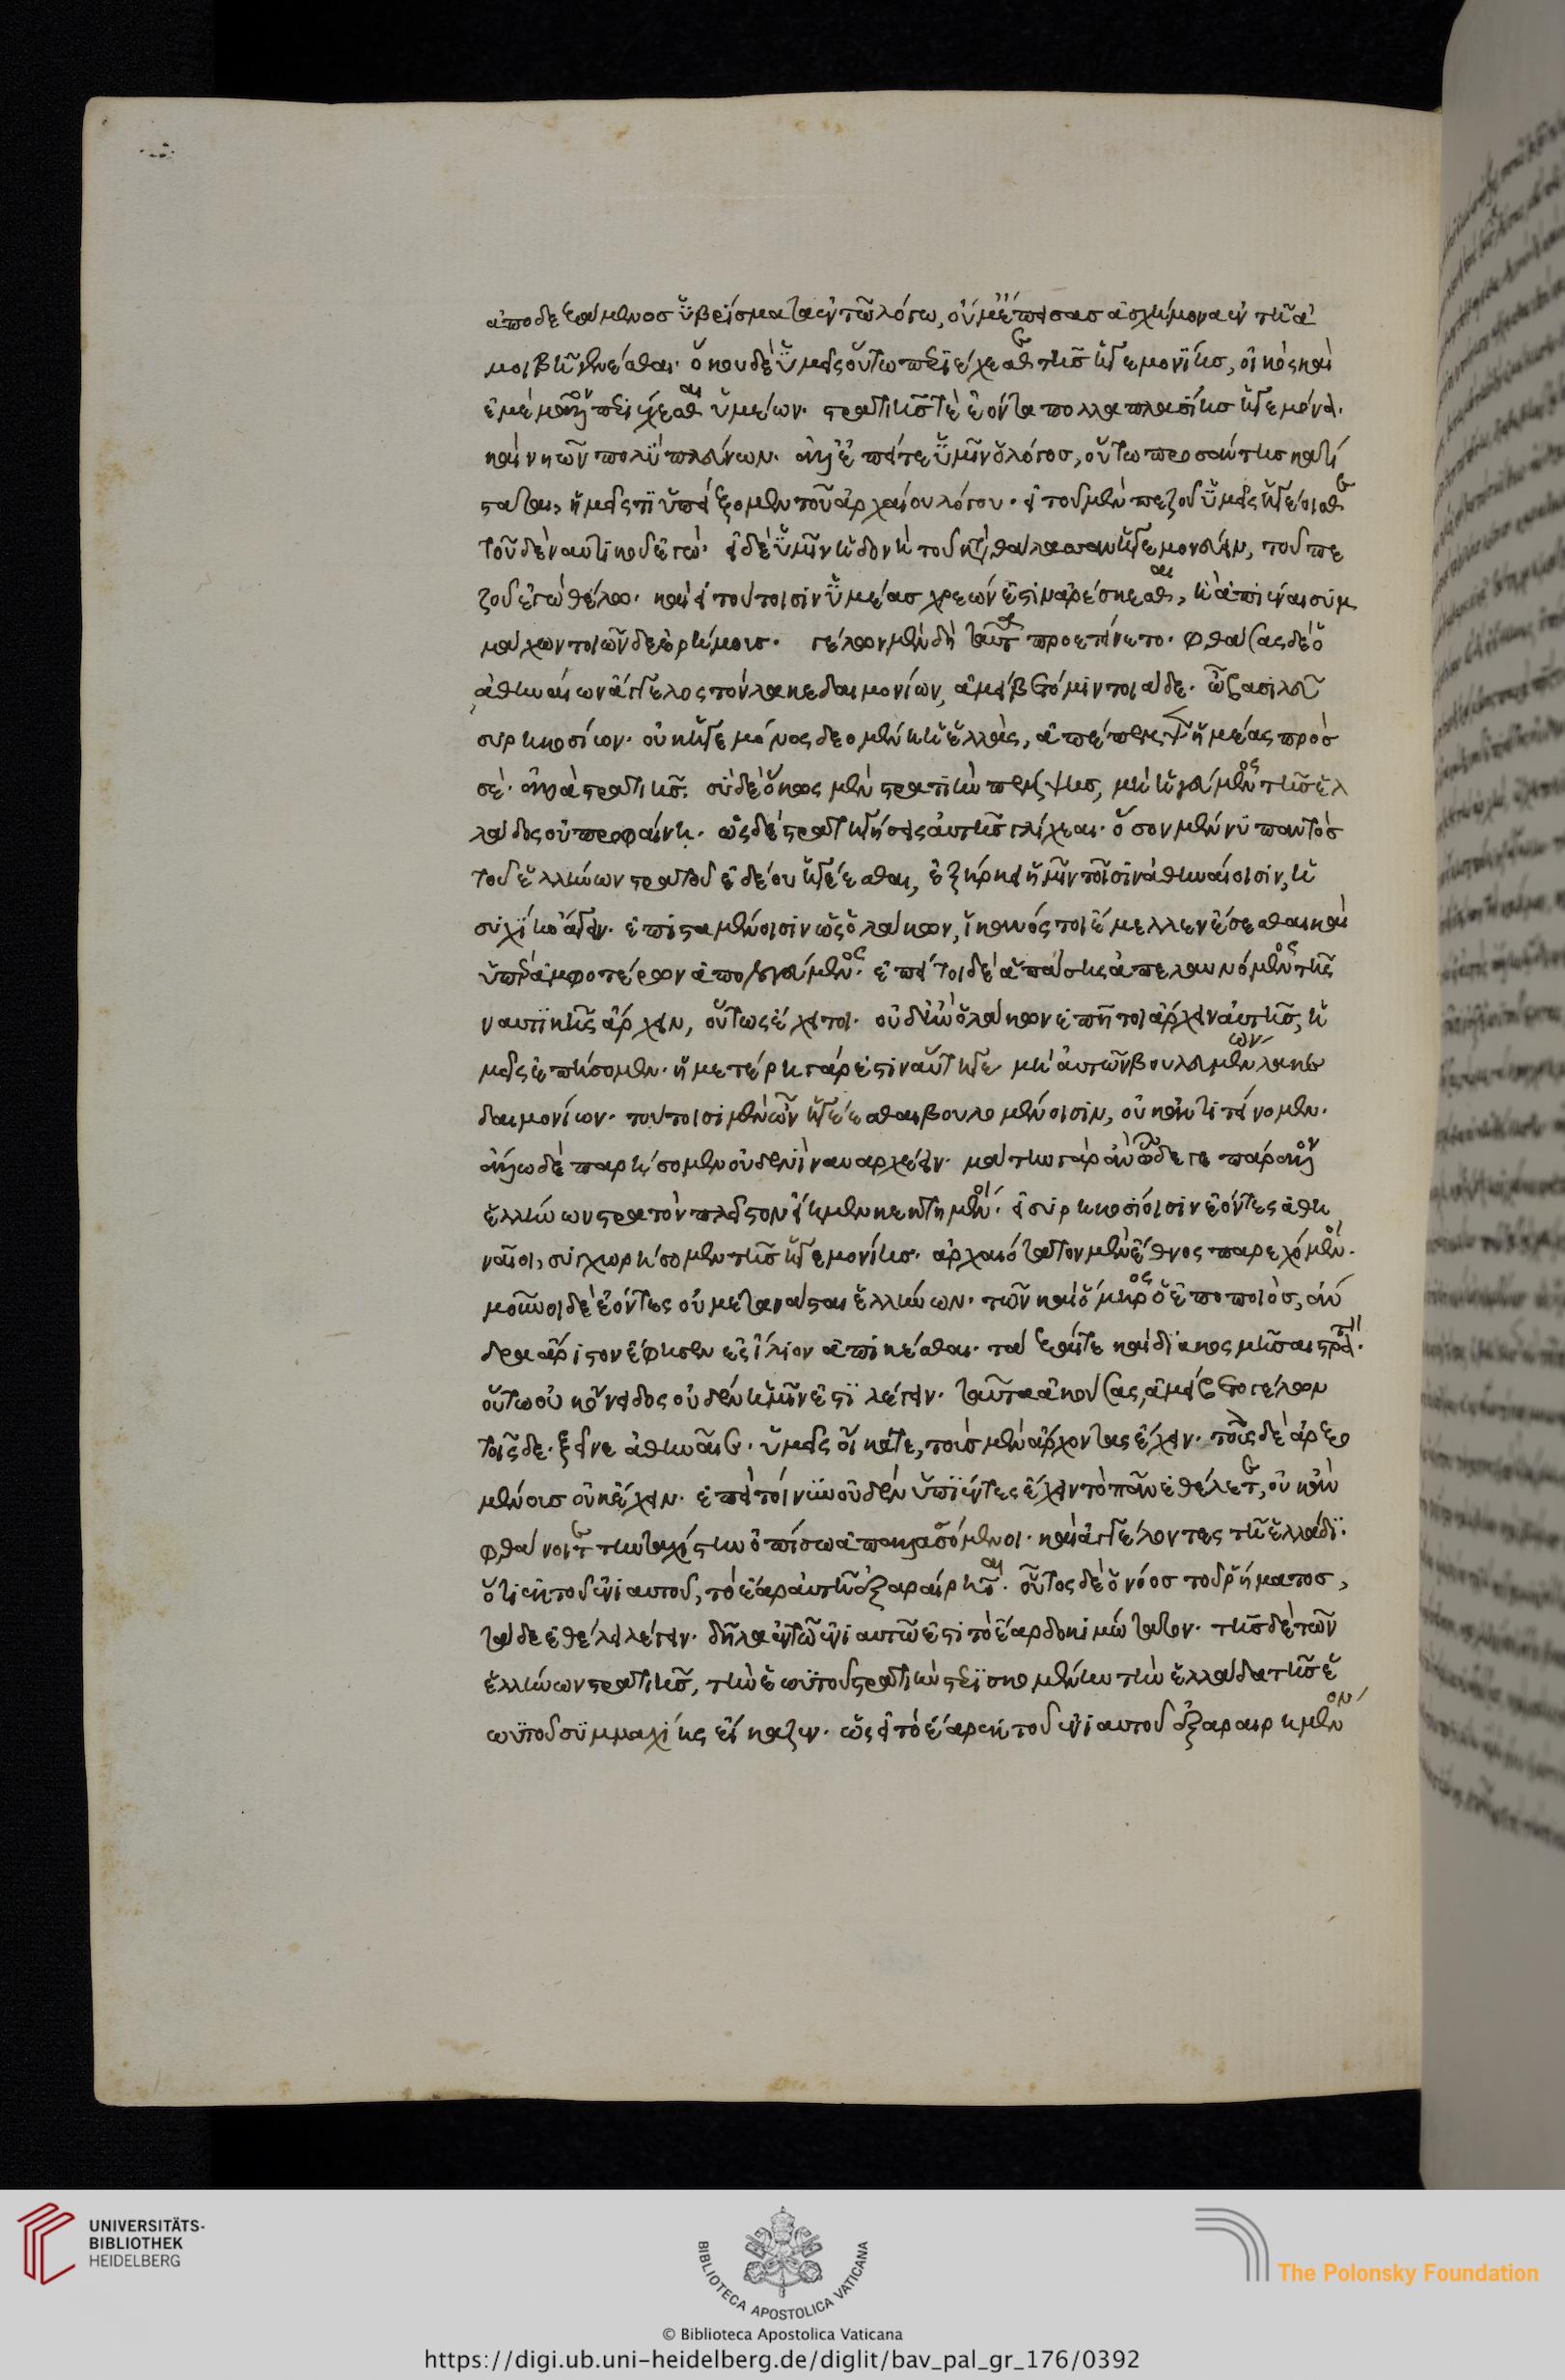 ἀποδεξάμενος ὑβρίσματα ἐν τῶ λόγω, οὔ με ἔπεισας ἀσχήμονα ἐν τῆ ἀ
μοιβῆ γενέσθαι. ὅκου δὲ ὑμεῖς οὕτω περιέχεσθε τῆς ἡγεμονίης, οἰκὸς καὶ
ἐμὲ μᾶλλον περιέχεσθαι ὑμέων. στρατιῆς τὲ ἐόντα πολλαπλασίης ἡγεμόνα.
καὶ νηῶν πολὺ πλεύνων. ἀλλ' ἐπείτε ὑμῖν ὁ λόγος, οὕτω προσάντης κατί
σταται, ἡμεῖς τι ὑπείξομεν τοῦ ἀρχαίου λόγου. εἰ τοῦ μὲν πεζοῦ ὑμεῖς ἡγέοισθε
τοῦ δὲ ναυτικοῦ ἐγώ. εἰ δὲ ὑμῖν ἡδονὴ τοῦ κατὰ θάλασσαν ἡγεμονεύειν, τοῦ πε
ζοῦ ἐγὼ θέλω. καὶ ἢ τούτοισιν ὑμέας χρεών ἐστιν ἀρέσκεσθαι, ἢ ἀπιέναι συμ
μάχων τοιῶνδε ἐρήμους. γέλων μὲν δὴ ταῦτα προετείνετο. φθάσας δὲ ὁ
ἀθηναίων ἄγγελος τὸν λακεδαιμονίων, ἀμείβετό μιν τοιάδε. ὦ βασιλεῦ
συρηκοσίων. οὐκ ἡγεμόνος δεομένη ἡ ἑλλὰς, ἀπέπεμψεν ἡμέας πρὸσ
σέ. ἀλλὰ στρατιῆς. σὺ δὲ ὅκως μὲν στρατιὴν πέμψῃς, μὴ ἡγεύμενος τῆς ἑλ
λάδος οὐ προφαίνῃ. ὡς δὲ στρατηγήσεις αὐτῆς γλίχεαι. ὅσον μὲν νῦν παντὸς
τοῦ ἑλλήνων στρατοῦ ἐδέου ἡγέεσθαι, ἐξήρκεε ἡμῖν τοῖσιν ἀθηναίοισιν, ἡ
συχίην ἄγειν. ἐπισταμένοισιν ὡς ὁ λάκων, ἱκανός τοι ἔμελλεν ἔσεσθαι καὶ
ὑπὲρ ἀμφοτέρων ἀπολογεύμενος. ἐπεί τοι δὲ ἁπάσης ἀπελαυνόμενος τῆς
ναυτικῆς ἄρχειν, οὕτως ἔχει τοι. οὐδ' ἢν ὁ λάκων ἐπῆ τοι ἄρχειν αὐτῆς, ἡ
μεῖς ἐπήσομεν. ἡμετέρη γάρ ἐστιν αὕτη γε μὴ αὐτῶν βουλευμένων λακε
δαιμονίων. τούτοισι μὲν ὦν ἡγέεσθαι βουλομένοισιν, οὐκ ἀντιτείνομεν.
ἄλλω δὲ παρήσομεν οὐδενὶ ναυαρχέειν. μάτην γὰρ ἂν ὧδε γε πάραλον
ἑλλήνων στρατὸν πλεῖστον εἴημεν κεκτημένοι. εἰ συρηκοσίοισιν ἐόντες ἀθη
ναῖοι, συγχωρήσομεν τῆς ἡγεμονίης. ἀρχαιότατον μὲν ἔθνος παρεχόμενοι.
μοῦνοι δὲ ἐόντες οὐ μετανάσται ἑλλήνων. τῶν καὶ ὅμηρος ὁ ἐποποιὸς, ἄν
δρα ἄριστον ἔφησεν ἐς ἴλιον ἀπικέσθαι. τάξαι τε καὶ διακοσμῆσαι στρατόν.
οὕτω οὐκ ὄνειδος οὐδὲν ἡμῖν ἐστὶ λέγειν. ταῦτα ἀκούσας, ἀμείβετο γέλων
τοῖσδε. ξεῖνε ἀθηναῖε. ὑμεῖς οἴκατε, τοὺς μὲν ἄρχοντας ἔχειν. τοὺς δὲ ἀρξο
μένους οὐκ ἔχειν. ἐπεὶ τοίνυν οὐδὲν ὑπιέντες ἔχειν τὸ πᾶν ἐθέλετε, οὐκ ἂν
φθάνοιτε τὴν ταχίστην ὀπίσω ἀπαλλασόμενοι. καὶ ἀγγέλοντες τῆ ἑλλάδι.
ὅτι ἐκ τοῦ ἐνιαυτοῦ, τὸ ἔαρ αὐτῆ ἐξαραίρηται. οὗτος δὲ ὁ νόος τοῦ ῥήματος,
τάδε ἐθέλει λέγειν. δῆλα ἐν τῶ ἐνιαυτῶ ἐστὶ τὸ ἔαρ δοκιμώτατον. τῆς δὲ τῶν
ἑλλήνων στρατιῆς, τὴν ἑωυτοῦ στρατιὴν στερισκομένην τὴν ἑλλάδα τῆς ἑ
ωυτοῦ συμμαχίης εἴκαζεν. ὡς εἰ τὸ ἔαρ ἐκ τοῦ ἐνιαυτοῦ ἐξαραιρημένον
UNIVERSITÄTS-
BIBLIOTHEK
HEIDELBERG
BIBLIOTECA APOSTOLICA VATICANA
The Polonsky Foundation
© Biblioteca Apostolica Vaticana
https://digi.ub.uni-heidelberg.de/diglit/bav_pal_gr_176/0392